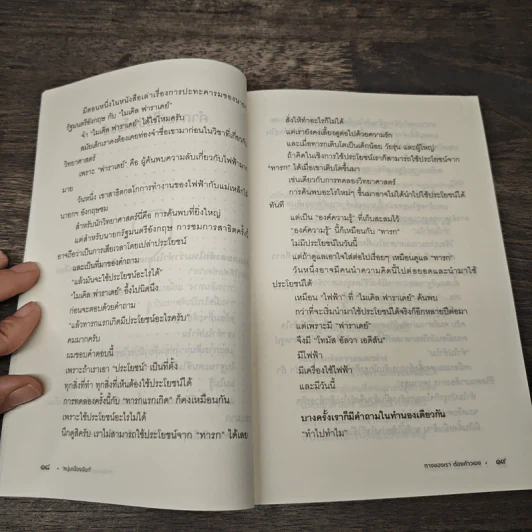 มีตอนหนึ่งในหนังสือเล่าเรื่องการปะทะคารมของนายก
รัฐมนตรีอังกฤษ กับ “ไมเคิล ฟาราเดย์”
จำ “ไมเคิล ฟาราเดย์” ได้ใช่ไหมครับ
สมัยเด็กเราคงต้องเคยท่องจำชื่อเขามาก่อนในวิชาที่เกี่ยวกับ
วิทยาศาสตร์
เพราะ “ฟาราเดย์” คือ ผู้ค้นพบความลับเกี่ยวกับไฟฟ้ามาก
มาย
วันหนึ่ง เขาสาธิตกลไกการทำงานของไฟฟ้ากับแม่เหล็กให้
นายกฯ อังกฤษชม
สำหรับนักวิทยาศาสตร์นี่คือ การค้นพบที่ยิ่งใหญ่
แต่สำหรับนายกรัฐมนตรีอังกฤษ การชมการสาธิตครั้งนี้
อาจถือว่าเป็นการเสียเวลาโดยเปล่าประโยชน์
และเป็นที่มาของคำถาม
“แล้วมันจะใช้ประโยชน์อะไรได้”
“ไมเคิล ฟาราเดย์” อึ้งไปนิดนึง
ก่อนจะตอบด้วยคำถาม
“แล้วทารกแรกเกิดมีประโยชน์อะไรครับ”
คมมากครับ
ผมชอบคำตอบนี้
เพราะถ้าเราเอา “ประโยชน์” เป็นที่ตั้ง
ทุกสิ่งที่ทำ ทุกสิ่งที่เห็นต้องใช้ประโยชน์ได้
การทดลองครั้งนี้กับ “ทารกแรกเกิด” ก็คงเหมือนกัน
เพราะใช้ประโยชน์อะไรไม่ได้
นึกดูสิครับ เราไม่สามารถใช้ประโยชน์จาก “ทารก” ได้เลย
๑๘ • หนุ่มเมืองจันท์
สั่งให้ทำอะไรก็ไม่ได้
แต่เรายังคงเลี้ยงดูต่อไปด้วยความรัก
และเมื่อทารกเติบโตเป็นเด็กน้อย วัยรุ่น และผู้ใหญ่
ถ้าคิดในเชิงการใช้ประโยชน์เราก็สามารถใช้ประโยชน์จาก
“ทารก” ได้เมื่อเขาเติบโตขึ้นมา
เช่นเดียวกับการทดลองทางวิทยาศาสตร์
การค้นพบอะไรใหม่ๆ ขึ้นมาอาจไม่ได้นำไปใช้ประโยชน์ได้
ทันที
แต่เป็น “องค์ความรู้” ที่เก็บสะสมไว้
“องค์ความรู้” นี้ก็เหมือนกับ “ทารก”
ไม่มีประโยชน์ในวันนี้
แต่ถ้าดูแลเอาใจใส่ต่อไปเรื่อยๆ เหมือนดูแล “ทารก”
วันหนึ่งอาจมีคนนำความคิดนี้ไปต่อยอดและนำมาใช้
ประโยชน์ได้
เหมือน “ไฟฟ้า” ที่ “ไมเคิล ฟาราเดย์” ค้นพบ
กว่าที่จะเริ่มนำมาใช้ประโยชน์ได้จริงก็อีกหลายปีต่อมา
แต่เพราะมี “ฟาราเดย์”
จึงมี “โทมัส อัลวา เอดิสัน”
มีไฟฟ้า
มีเครื่องใช้ไฟฟ้า
และมีวันนี้
บางครั้งเราก็มีคำถามในทำนองเดียวกัน
“ทำไปทำไม”
ทางของเรา ต้องก้าวเอง • ๑๙